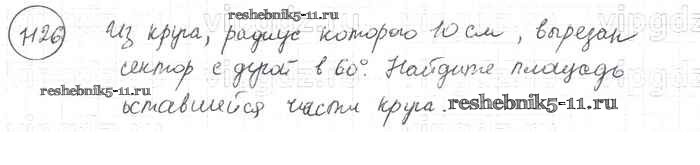 1126 Из круга, радиус которого 10 см, вырезан
сектор с дугой в 60°. Найдите площадь
оставшейся части круга.
reshebnik5-11.ru
reshebnik5-11.ru
reshebnik5-11.ru